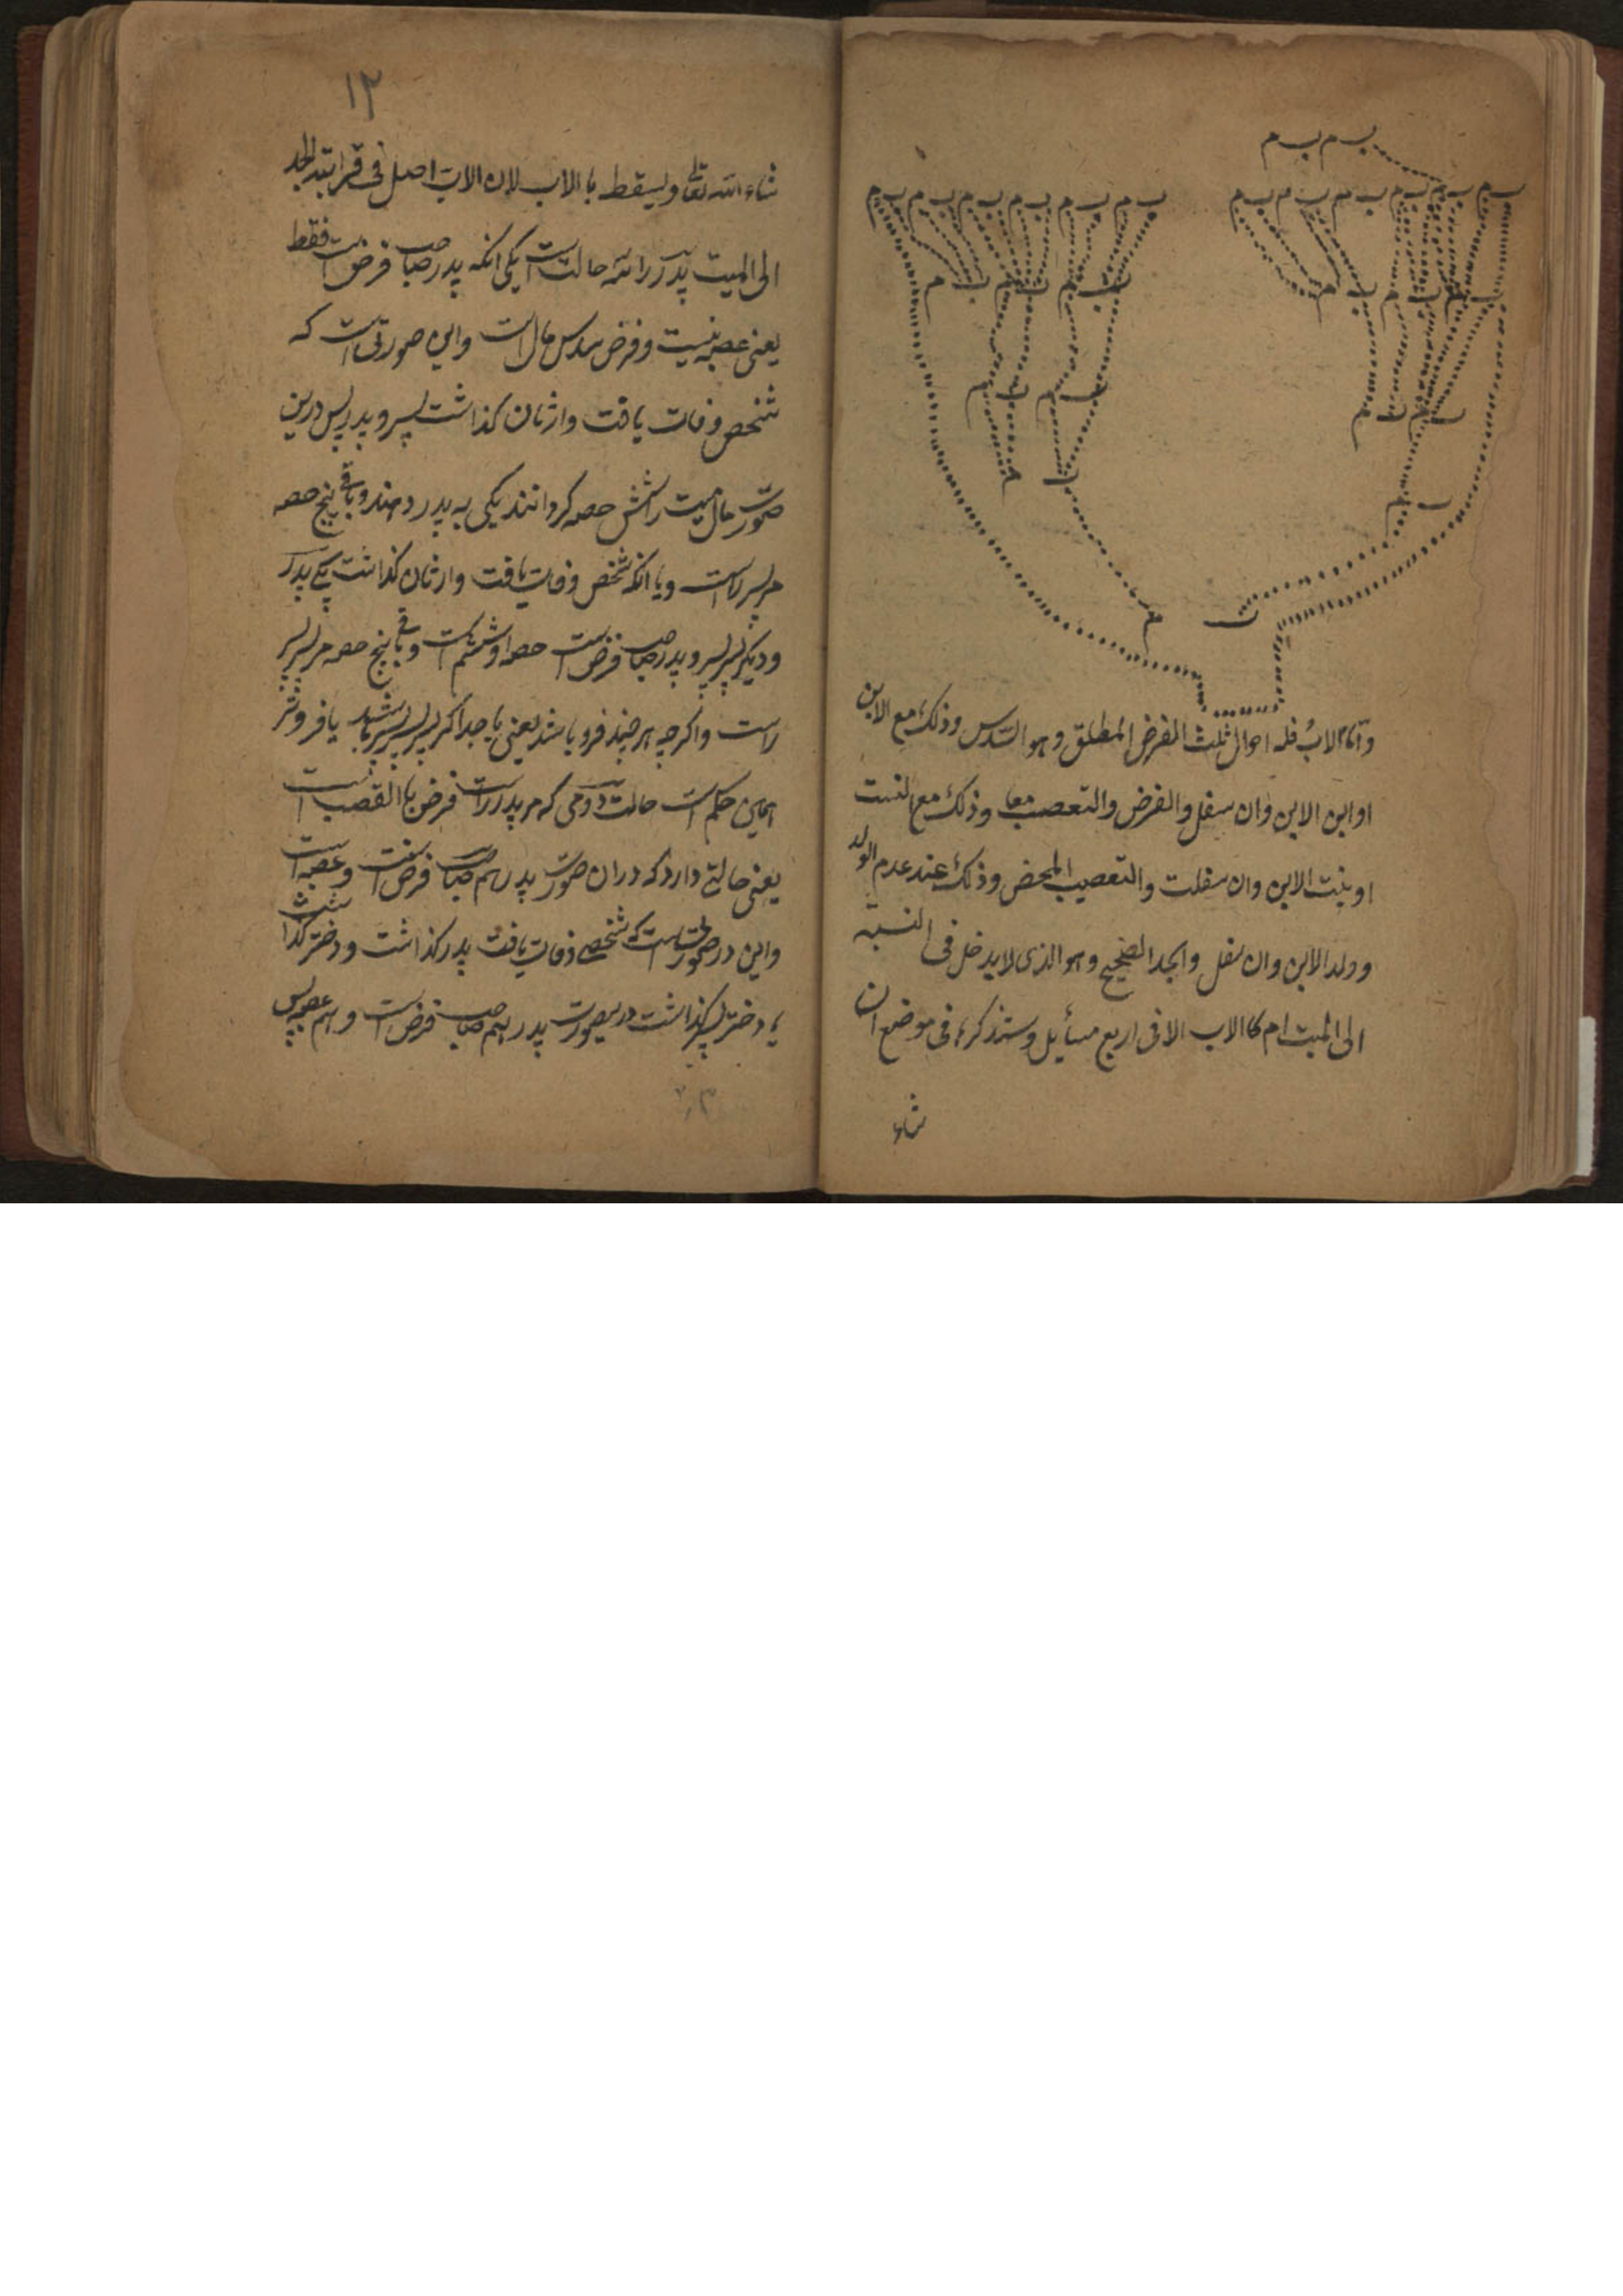 ب م ب م
ب م ب م ب م ب م ب م ب م
ب م ب م ب م ب م ب م ب م
ب م ب م ب م
ب م ب م ب م
ب م ب م
ب م ب م
ب م
ب م
ب م
واما الاب فله احوال ثلث الفرض المطلق وهو السدس وذلك مع الابن
او ابن الابن وان سفل والفرض والتعصيب معا وذلك مع البنت
او بنت الابن وان سفلت والتعصيب المحض وذلك عند عدم الولد
وولد الابن وان سفل والجد الصحيح وهو الذی لا يدخل فی النسبة
الی الميت ام كا الاب الا فی اربع مسأيل وستذكرها فی موضع ان
شاء
١٢
شاء الله تعالی ويسقط با الاب لان الاب اصل فی قرابة الجد
الی الميت پدر را سه حالت است یکی انکه پدر صاحب فرض است فقط
یعنی عصبه نیست و فرض سدس مال است واین صورتی است که
شخص وفات یافت وارثان کذاشت پسر و پدر پس درین
صورت مال میت را شش حصه کردانند یکی به پدر دهند و باقی پنج حصه
مر پسر راست ویا انکه شخص وفات یافت وارثان کذاشت یکی پدر
ودیکر پسر پسر و پدر صاحب فرض است حصه او ششم است و باقی پنج حصه مر پسر پسر
راست واکرچه هر چند فرو باشد یعنی یا جدا کر پسر پسر پسر باشد یا فروتر
همین حکم است حالت دومی که مر پدر راست فرض با القصب است
یعنی حالتی دارد که دران صورت پدر هم صاحب فرض است و عصبه است
واین در صورتی است که شخصی وفات یافت پدر کذاشت و دختر کذاشت
یا دختر پسر کذاشت درین صورت پدر هم صاحب فرض است و هم عصبه پس